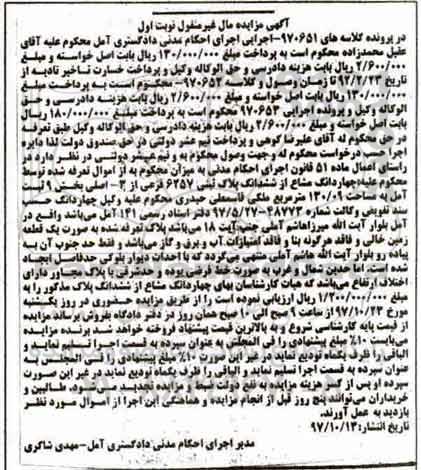 آگهی مزایده مال غیرمنقول نوبت اول
در پرونده کلاسه های ۹۷۰۶۵۱-اجرایی اجرای احکام مدنی دادگستری آمل محکوم علیه آقای
عقیل محمدزاده محکوم است به پرداخت مبلغ ۱۳۰/۰۰۰/۰۰۰ ریال بابت اصل خواسته و مبلغ
۲/۶۰۰/۰۰۰ ریال بابت هزینه دادرسی و حق الوکاله وکیل و پرداخت خسارت تاخیر تادیه از
تاریخ ۹۲/۲/۲۳ تا زمان وصول و کلاسه ۹۷۰۶۵۲- محکوم است به پرداخت مبلغ
۱۳۰/۰۰۰/۰۰۰ ریال بابت اصل خواسته و مبلغ ۲/۶۰۰/۰۰۰ ریال بابت هزینه دادرسی و حق
الوکاله وکیل و پرونده اجرایی ۹۷۰۶۵۳ محکوم است به پرداخت مبلغ ۱۸۰/۰۰۰/۰۰۰ ریال
بابت اصل خواسته و مبلغ ۲/۶۰۰/۰۰۰ ریال بابت هزینه دادرسی و حق الوکاله وکیل طبق تعرفه
در حق محکوم له آقای علیرضا کوهی و پرداخت نیم عشر دولتی در حق صندوق دولت لذا دایره
اجرا حسب درخواست محکوم له و جهت وصول محکوم به و نیم عشر دولتی در نظر دارد در
راستای اعمال ماده ۵۱ قانون اجرای احکام مدنی به میزان محکوم به از اموال تعرفه شده توسط
محکوم علیه(چهاردانگ مشاع از ششدانگ پلاک ثبتی ۶۲۵۷ فرعی از ۳- اصلی بخش ۹ ثبت
آمل به مساحت ۱۳۰/۰۹ مترمربع ملکی قاسمعلی حیدری محکوم علیه وکیل چهاردانگ حسب
سند تفویض وکالت شماره ۴۸۷۷۳-۹۷/۵/۲۷ دفتر اسناد رسمی ۱۴۱ آمل می‌باشد واقع در
آمل بلوار آیت الله میرزاهاشم آملی جنب آیت ۱۸ می‌باشد پلاک تعرفه شده به صورت یک قطعه
زمین خالی و فاقد هرگونه بنا و فاقد امتیازات آب و برق و گاز می‌باشد و فقط حد جنوب آن به
پیاده رو بلوار آیت الله هاشم آملی منتهی می‌گردد که با احداث دیوار بلوکی حدفاصل ایجاد
شده است. اما حدین شمال و غرب به صورت خط فرضی بوده و حدشرقی با پلاک مجاور دارای
اختلاف ارتفاع می‌باشد که هیات کارشناسان بهای چهاردانگ مشاع از ششدانگ پلاک مذکور را به
مبلغ ۱/۲۰۰/۰۰۰/۰۰۰ ریال ارزیابی نموده است را از طریق مزایده حضوری در روز یکشنبه
مورخ ۹۷/۱۰/۲۳ از ساعت ۹ صبح الی ۱۰ صبح همان روز در دفتر دادگاه بفروش برساند مزایده
از قیمت پایه کارشناسی شروع و به بالاترین قیمت پیشنهاد فروخته خواهد شد برنده مزایده
می‌بایست ۱۰٪ مبلغ پیشنهادی را فی المجلس به عنوان سپرده به قسمت اجرا تسلیم نماید و
الباقی را ظرف یکماه تودیع نماید در غیر این صورت ۱۰٪ مبلغ پیشنهادی را فی المجلس به
عنوان سپرده به قسمت اجرا تسلیم نماید و الباقی را ظرف یکماه تودیع نماید در غیر این صورت
سپرده او پس از کسر هزینه مزایده به نفع دولت ضبط و مزایده تجدید می‌شود. طالبین و
خریداران می‌توانند پنج روز قبل از انجام مزایده و هماهنگی این اجرا از اموال مورد نظر
بازدید به عمل آورند.
تاریخ انتشار: ۹۷/۱۰/۱۳
مدیر اجرای احکام مدنی دادگستری آمل-مهدی شاکری